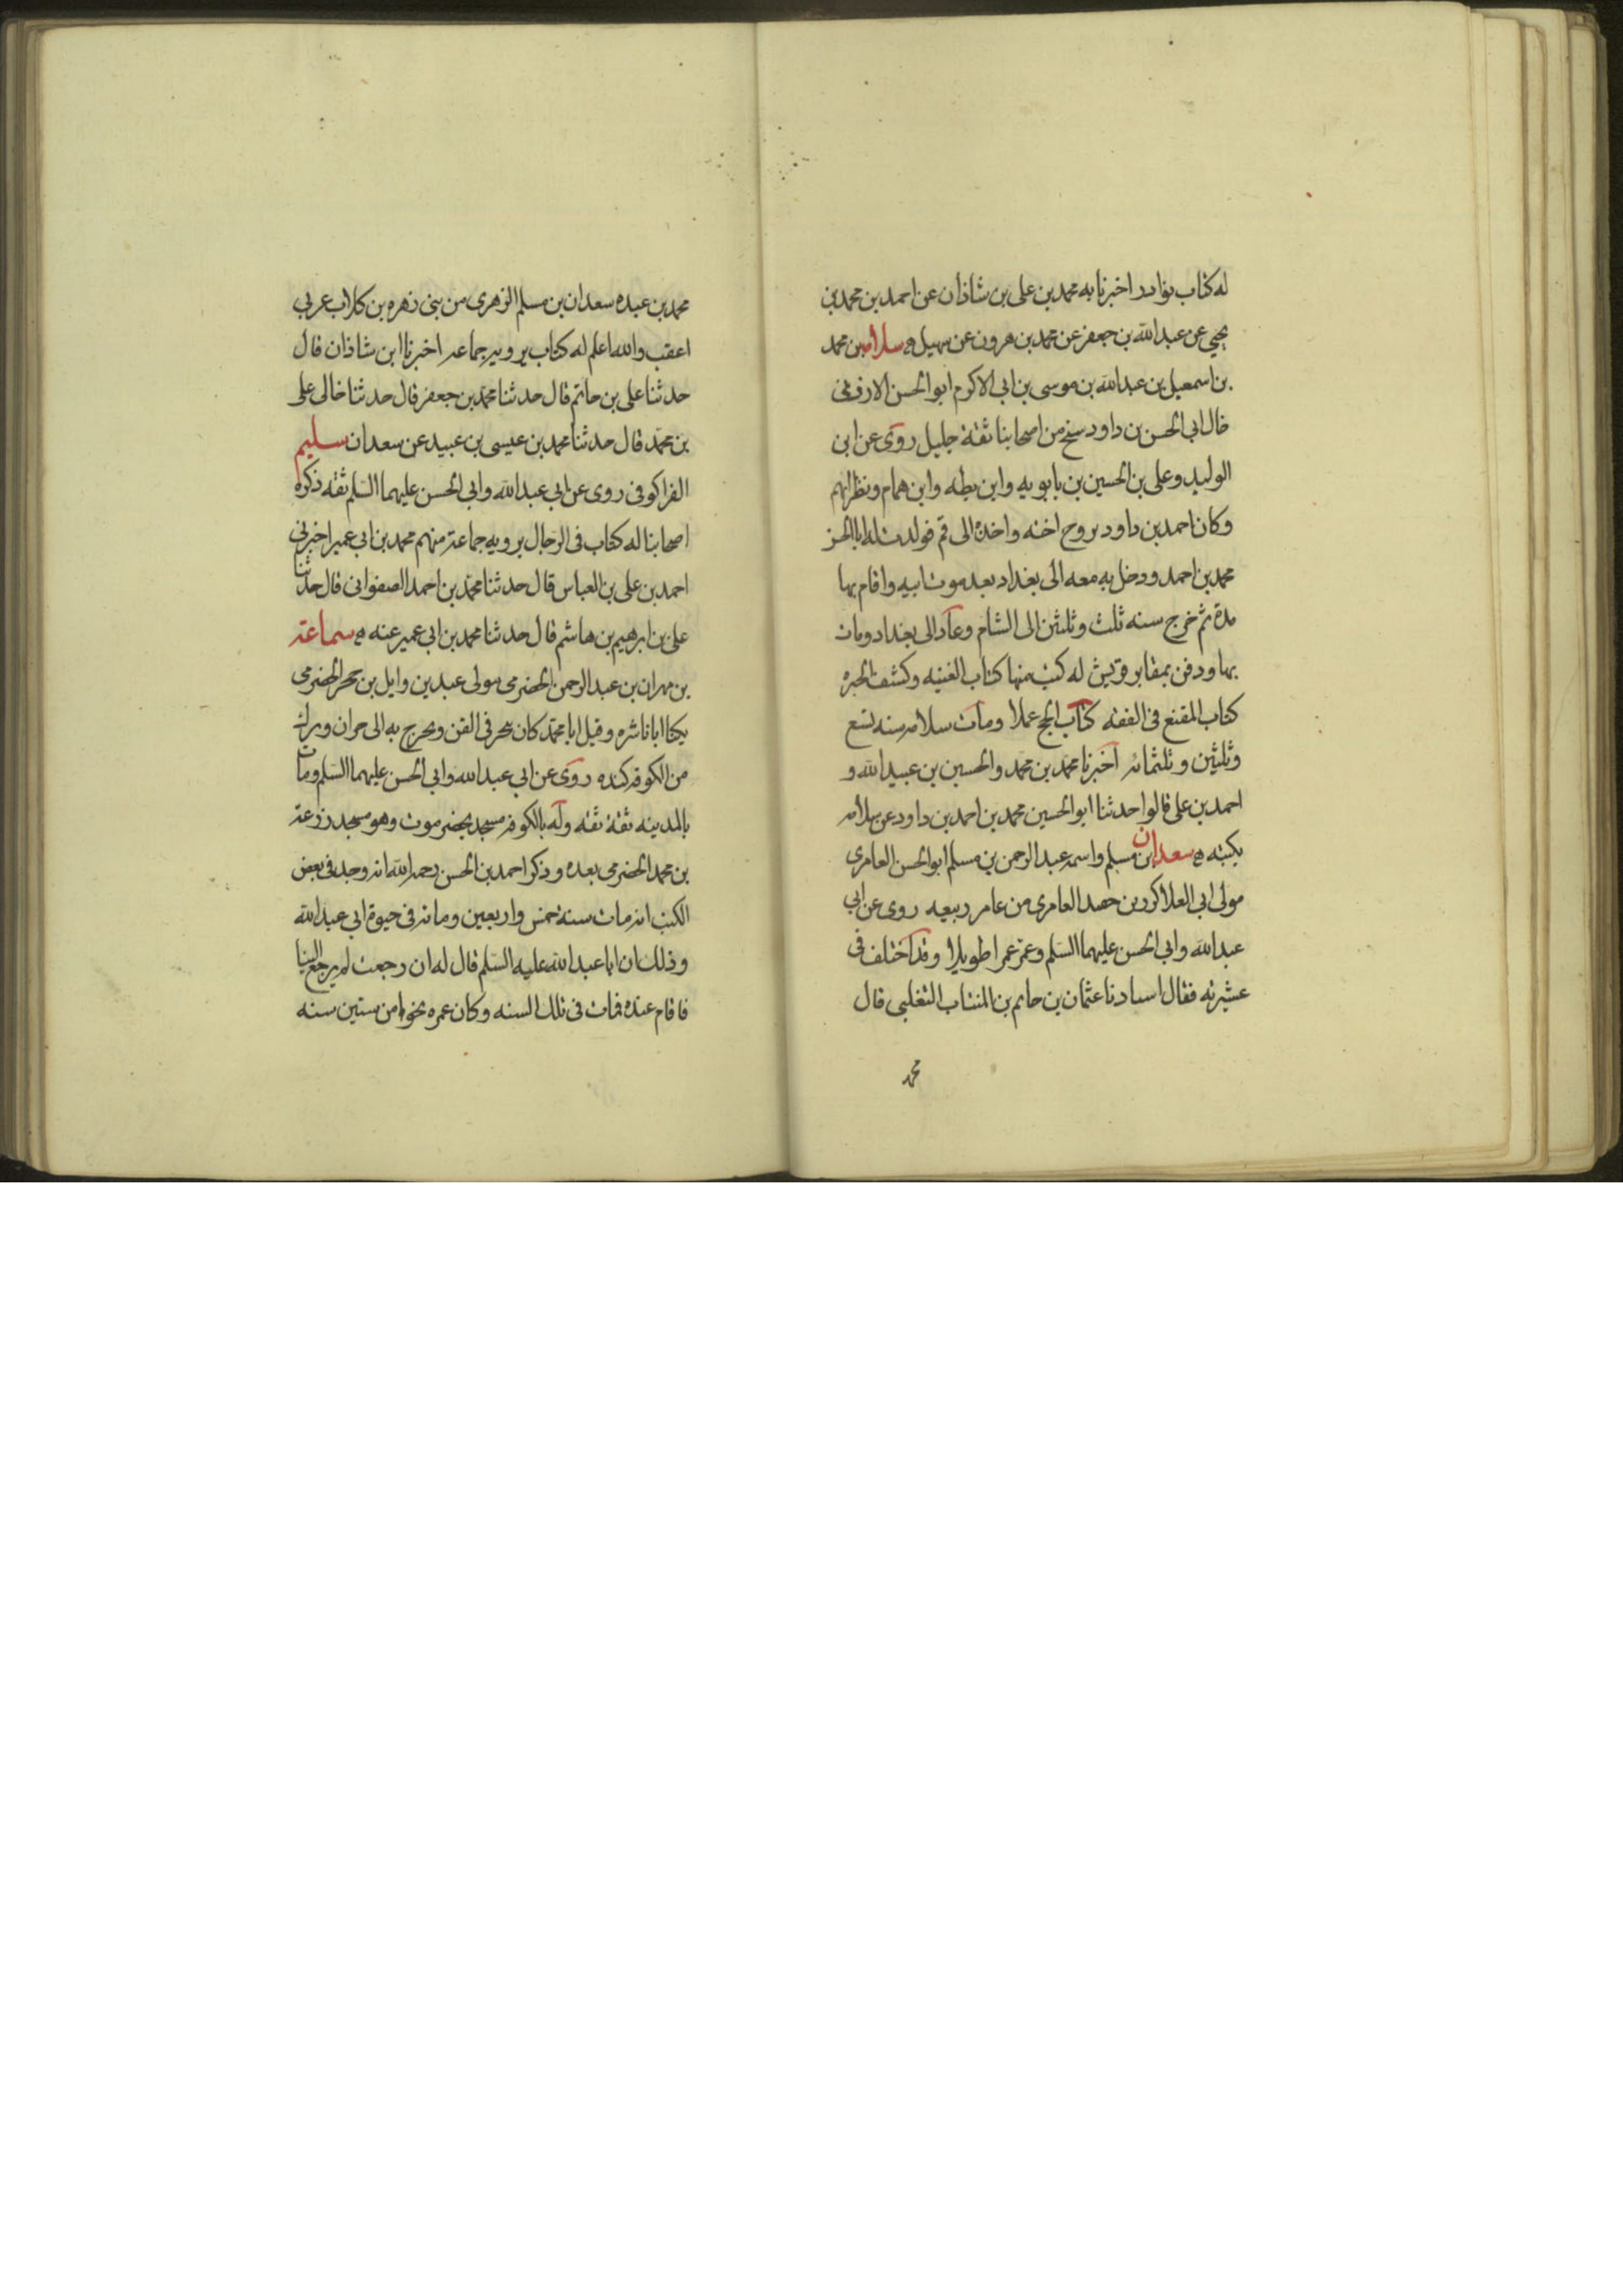 له كتاب نوادر اخبرنا به محمد بن على بن شاذان عن احمد بن محمد بن
يحيى عن عبد الله بن جعفر عن محمد بن هرون عن سهيل ه سلامه بن محمد
بن اسمعيل بن عبد الله بن موسى بن ابى الاكرم ابو الحسن الارزنى
خال ابى الحسن بن داود شيخ من اصحابنا ثقة جليل روى عن ابن
الوليد وعلى بن الحسين بن بابويه وابن بطه وابن همام ونظرائهم
وكان احمد بن داود تزوج اخته واخذها الى قم فولدت له ابا الحسن
محمد بن احمد ودخل به معه الى بغداد بعد موت ابيه واقام بها
مدة ثم خرج سنه ثلث وثلثين الى الشام وعاد الى بغداد ومات
بها ودفن بمقابر قريش له كتب منها كتاب الغيبه وكشف الحيره
كتاب المقنع فى الفقه كتاب الحج عملا ومات سلامه سنه تسع
وثلثين وثلثمائه اخبرنا محمد بن محمد والحسين بن عبيد الله و
احمد بن على قالوا حدثنا ابو الحسين محمد بن احمد بن داود عن سلامه
بكتبه ه سعدان بن مسلم واسمه عبد الرحمن بن مسلم ابو الحسن العامرى
مولى ابى العلا كرز بن حفيد العامرى من عامر ربيعه روى عن ابى
عبد الله وابى الحسن عليهما السلم وعمر عمرا طويلا وقد اختلف فى
عشيرته فقال استادنا عثمان بن حاتم بن المنتاب التغلبى قال
محمد
محمد بن عبده سعدان بن مسلم الزهرى من بنى زهره بن كلاب عربى
اعقب والله اعلم له كتاب يرويه جماعه اخبرنا ابن شاذان قال
حدثنا على بن حاتم قال حدثنا محمد بن جعفر قال حدثنا خالى على
بن محمد قال حدثنا محمد بن عيسى بن عبيد عن سعدان سليم
الفرا كوفى روى عن ابى عبد الله وابى الحسن عليهما السلم ثقه ذكره
اصحابنا له كتاب فى الرجال يرويه جماعة منهم محمد بن ابى عمير اخبرنى
احمد بن على بن العباس قال حدثنا محمد بن احمد الصفوانى قال حدثنا
على بن ابرهيم بن هاشم قال حدثنا محمد بن ابى عمير عنه ه سماعة
بن مهران بن عبد الرحمن الحضرمى مولى عبد بن وايل بن حجر الحضرمى
يكنا ابا ناشره وقيل ابا محمد كان يتجر فى القز ويخرج به الى حران ونزل
من الكوفه كنده روى عن ابى عبد الله وابى الحسن عليهما السلم ومات
بالمدينه ثقة ثقه وله بالكوفه مسجد بحضرموت وهو مسجد زرعة
بن محمد الحضرمى بعده وذكر احمد بن الحسن رحمه الله انه وجد فى بعض
الكتب انه مات سنة خمس واربعين ومائه فى حيوة ابى عبد الله
وذلك ان ابا عبد الله عليه السلم قال له ان رجعت لم يرجع الينا
فاقام عنده فمات فى تلك السنه وكان عمره نحوا من ستين سنه